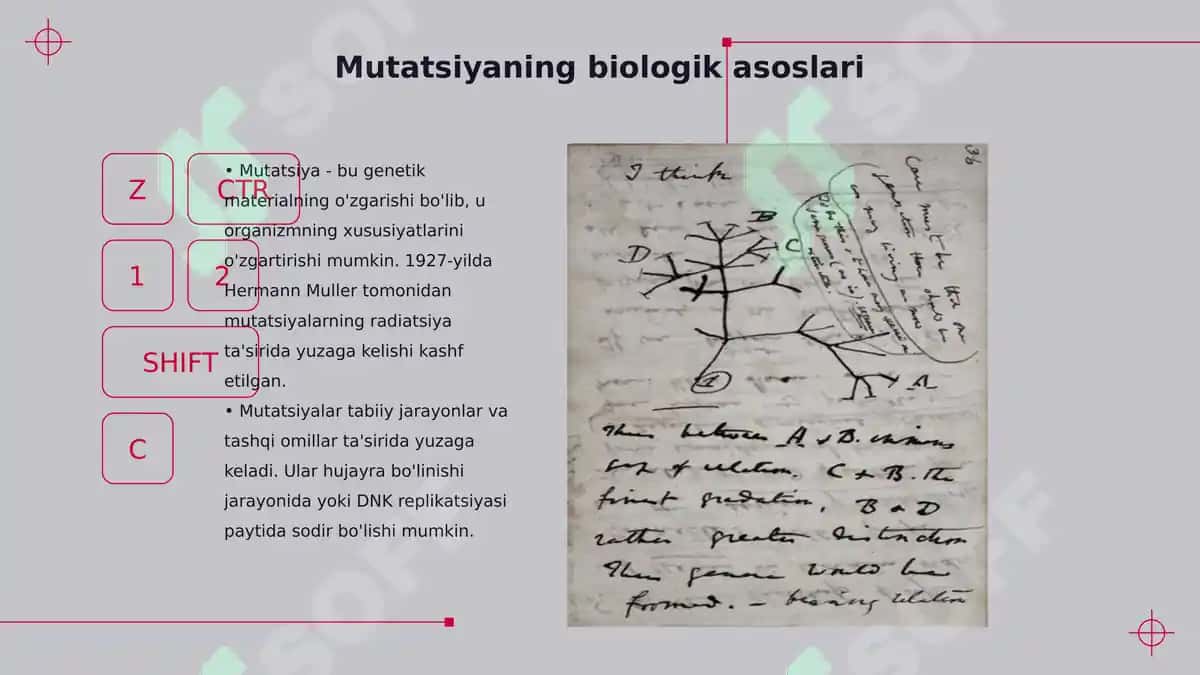 Mutatsiyaning biologik asoslari
Z
CTR
1
2
SHIFT
C
• Mutatsiya - bu genetik
materialning o'zgarishi bo'lib, u
organizmning xususiyatlarini
o'zgartirishi mumkin. 1927-yilda
Hermann Muller tomonidan
mutatsiyalarning radiatsiya
ta'sirida yuzaga kelishi kashf
etilgan.
• Mutatsiyalar tabiiy jarayonlar va
tashqi omillar ta'sirida yuzaga
keladi. Ular hujayra bo'linishi
jarayonida yoki DNK replikatsiyasi
paytida sodir bo'lishi mumkin.
36
I think
B
D
C
A
1
Case must be that one
generation then should be
as many living as now
Thus between A & B. immens
gap of relation. C & B. the
finest gradation, B & D
rather greater distinction
Thus genera would be
formed. — bearing relation
SOFF